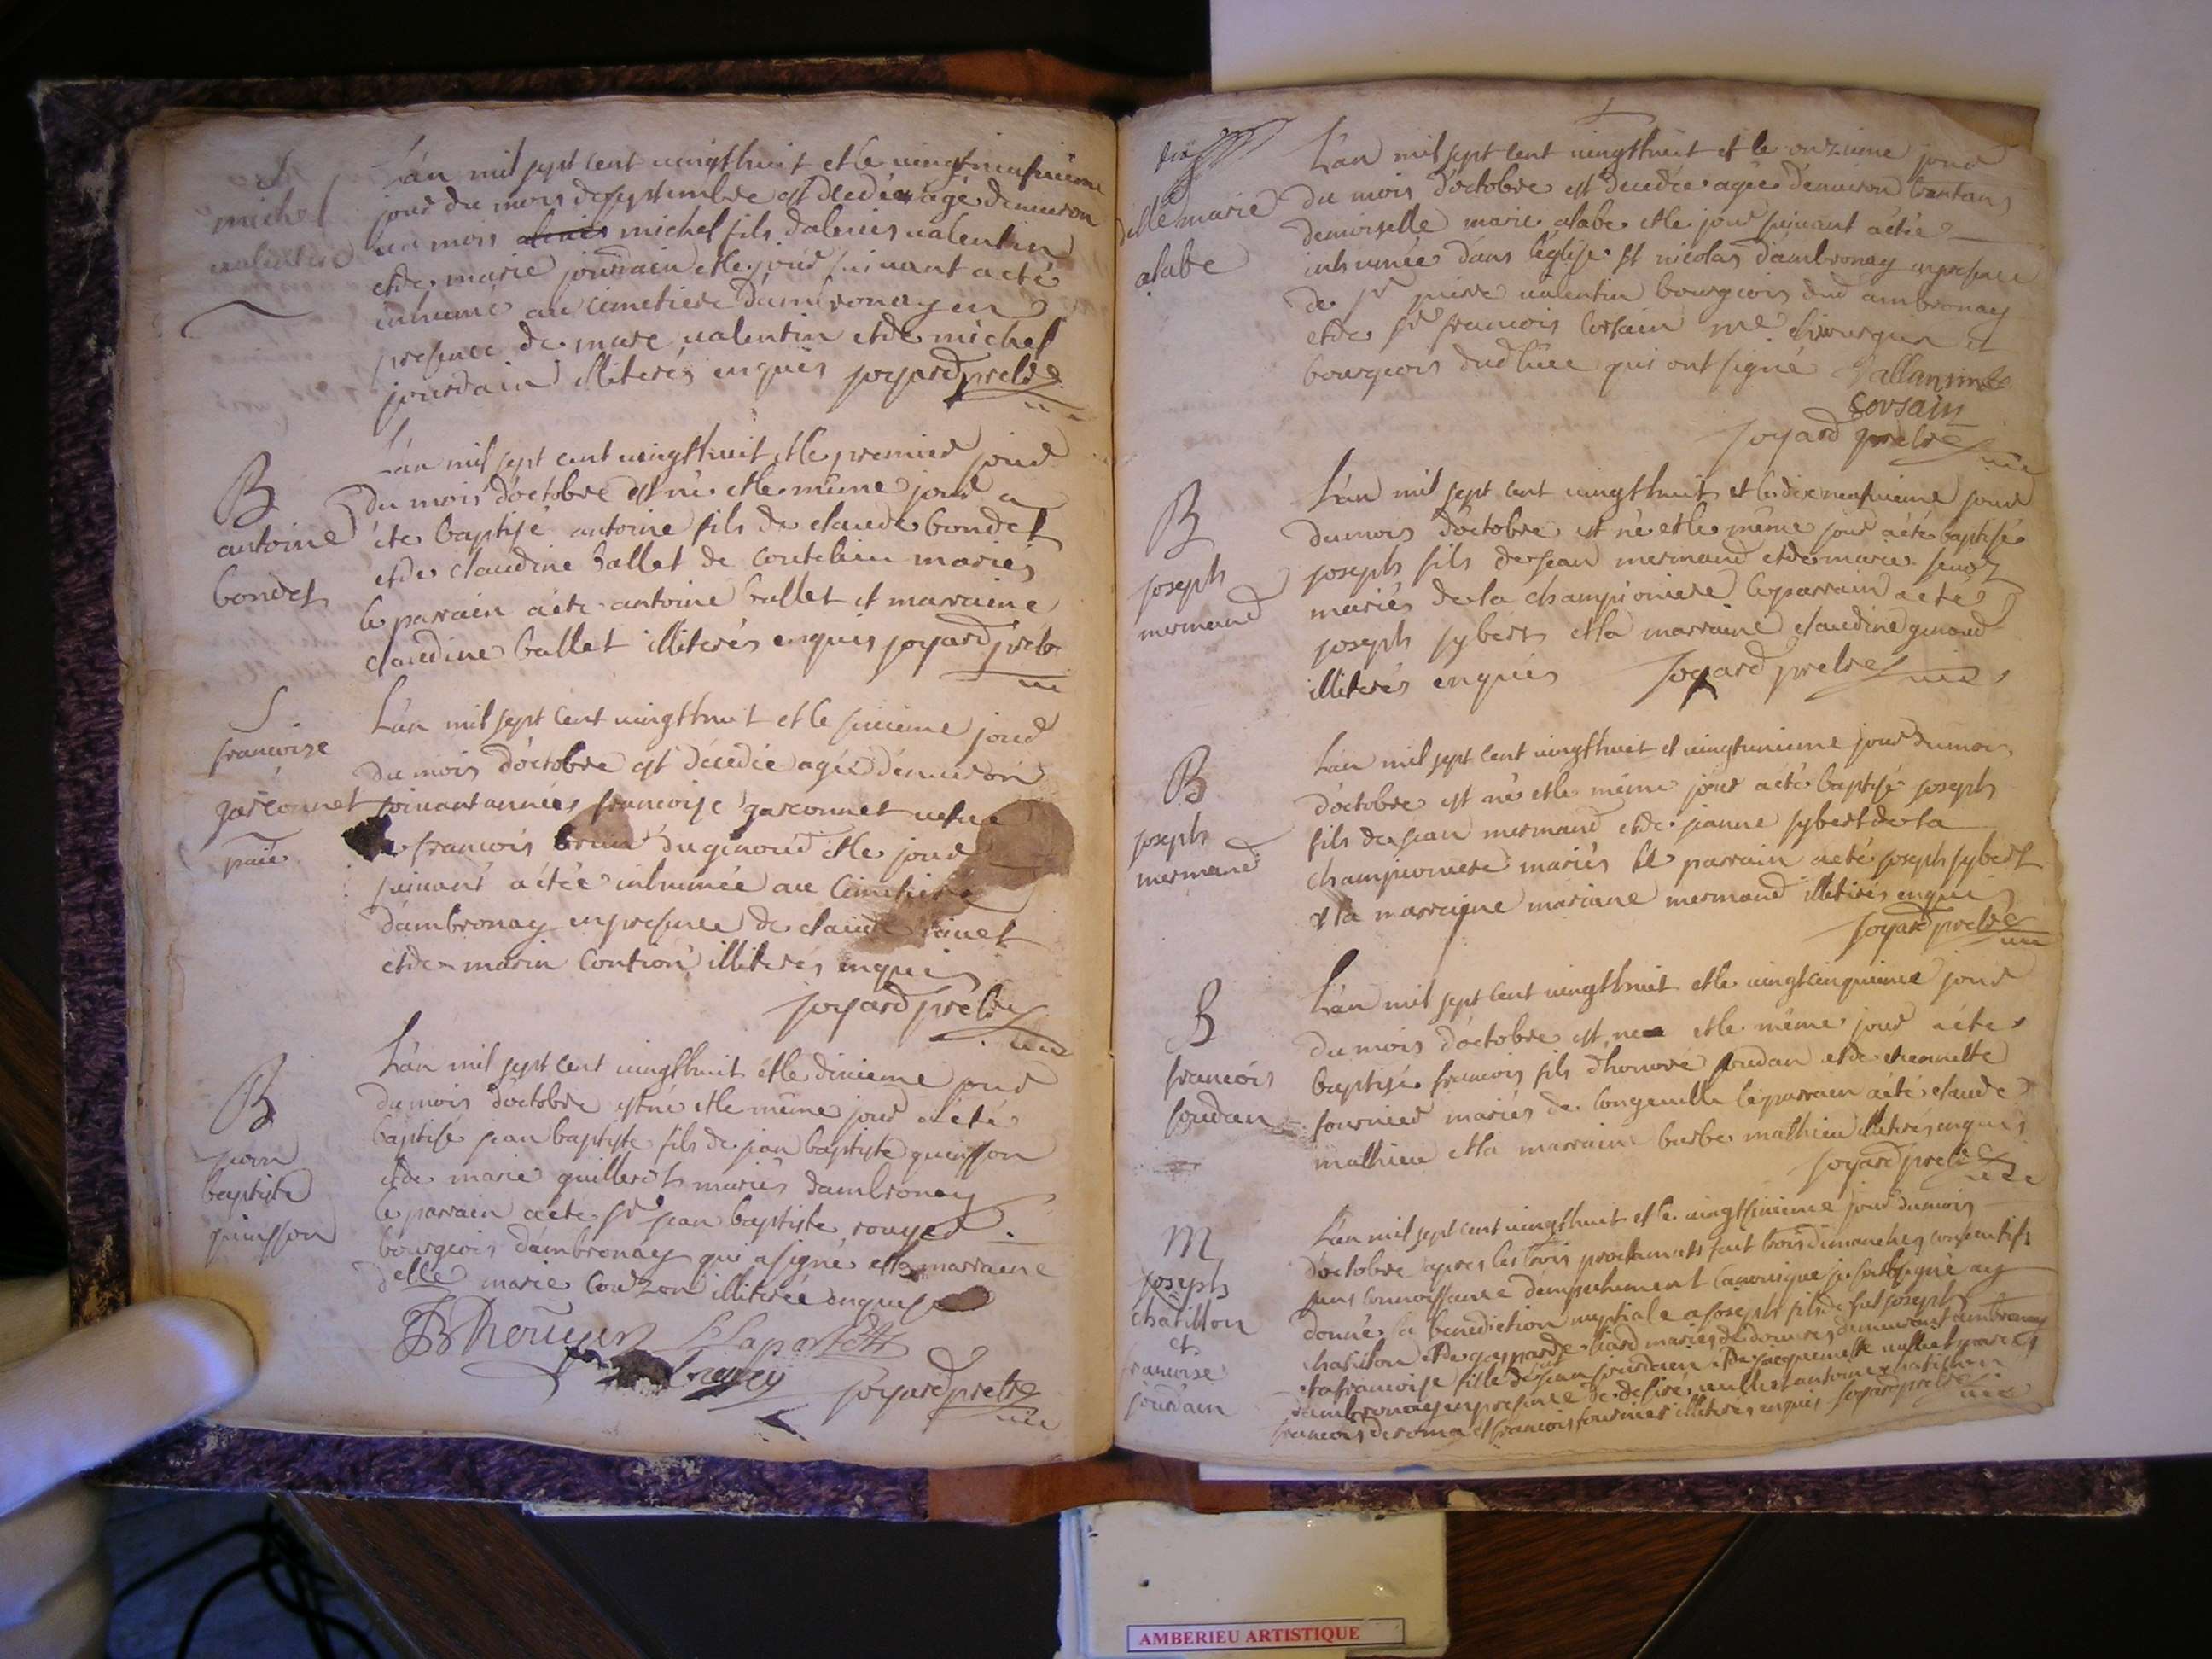 michel
valentin
L'an mil sept cent vingthuit et le vingtneufvieme
jour du mois de septembre est decede agé denviron
un mois michel fils dalexis valentin
et de marie jourdain et le jour suivant a eté
inhumé au cimetiere dambronay en
presence de marc valentin et de michel
jourdain illiterés enquis joyard pretre
B
antoine
bondet
L'an mil sept cent vingthuit et le premier jour
du mois d'octobre est né et le même jour a
été baptisé antoine fils de claude bondet
et de claudine ballet de coutelieu mariés
le parrain a été antoine ballet et marraine
claudine ballet illiterés enquis joyard pretre
S.
francoise
garconnet
paié
L'an mil sept cent vingthuit et le sixieme jour
du mois d'octobre est décedée agée d'environ
soixant années francoise garconnet veuve
francois brun du genoud et le jour
suivant a étée inhumée au cimetiere
d'ambronay en presence de claude
et de marin contion illiterés enquis
joyard prêtre
B
jean
baptiste
quinsson
L'an mil sept cent vingthuit et le dixieme jour
du mois d'octobre est né et le même jour a eté
baptisé jean baptiste fils de jean baptiste quinsson
et de marie quillerot mariés dambronay
le parrain a eté sr jean baptiste rouyer
bourgeois dambronay qui a signé et la marraine
delle marie couzon illiterée enquise
JB Rouyer Laporte
joyard pretre
delle marie
alabe
L'an mil sept cent vingthuit et le onzieme jour
du mois d'octobre est decedée agée d'environ trentans
demoiselle marie alabe et le jour suivant a étée
inhumée dans l'église st nicolas d'ambronay en presence
de sr pierre valentin bourgeois dud ambronay
et de sr francois corsain me chirurgien et
bourgeois dud lieu qui ont signé Vallantin
corsain
joyard pretre
B
joseph
mermand
L'an mil sept cent vingthuit et le dixneufvieme jour
du mois d'octobre est né et le même jour a été baptisé
joseph fils de jean mermand et de marie
mariés de la championiere le parrain a eté
joseph sybert et la marraine claudine genoud
illiterés enquis joyard pretre
B
joseph
mermand
L'an mil sept cent vingthuit et vingtunieme jour du mois
d'octobre est né et le même jour a été baptisé joseph
fils de jean mermand et de jeanne sybert de la
championiere mariés le parrain a eté joseph sybert
et la marraine mariane mermand illiterés enquis
joyard pretre
B
francois
joudan
L'an mil sept cent vingthuit et le vingtcinquieme jour
du mois d'octobre est né et le même jour a été
baptisé francois fils d'honoré joudan et de etiennette
fournier mariés de longeville le parrain a été claude
mathieu et la marraine barbe mathieu illiterés enquis
joyard pretre
M
joseph
chatillon
et
francoise
jourdain
L'an mil sept cent vingthuit et le vingtsixieme jour du mois
d'octobre apres les trois proclamats fait trois dimanches consecutifs
sans connoissance d'empechement canonique je soussigné ay
donné la benediction nuptiale a joseph fils de feu joseph
chatillon et de gasparde liard mariés de douvres demeurant ambronay
et a francoise fille de jean jourdain et de jacquemette mariés
d'ambronay en presence de desiré antoine chatillon
francois deroma et francois fournier illiterés enquis joyard pretre
AMBERIEU ARTISTIQUE